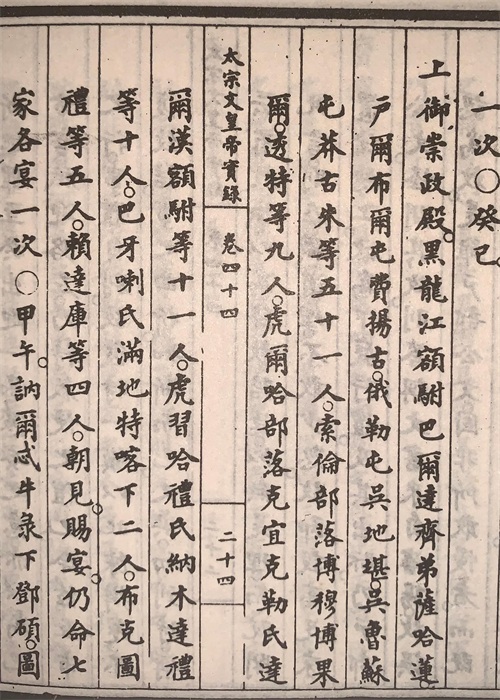 一次○癸巳
上御崇政殿。黑龍江額駙巴爾達齊弟薩哈蓮
戶爾布爾屯費揚古。俄勒屯吳地堪。吳魯蘇
屯莽古朱等五十一人。索倫部落博穆博果
爾。透特等九人。虎爾哈部落克宜克勒氏達
太宗文皇帝實錄 卷四十四 二十四
爾漢額駙等十一人。虎習哈禮氏納木達禮
等十人。巴牙喇氏滿地特喀下二人。布克圖
禮等五人。賴達庫等四人。朝見。賜宴。仍命七
家各宴一次○甲午。訥爾忒牛彔下鄧碩。圖